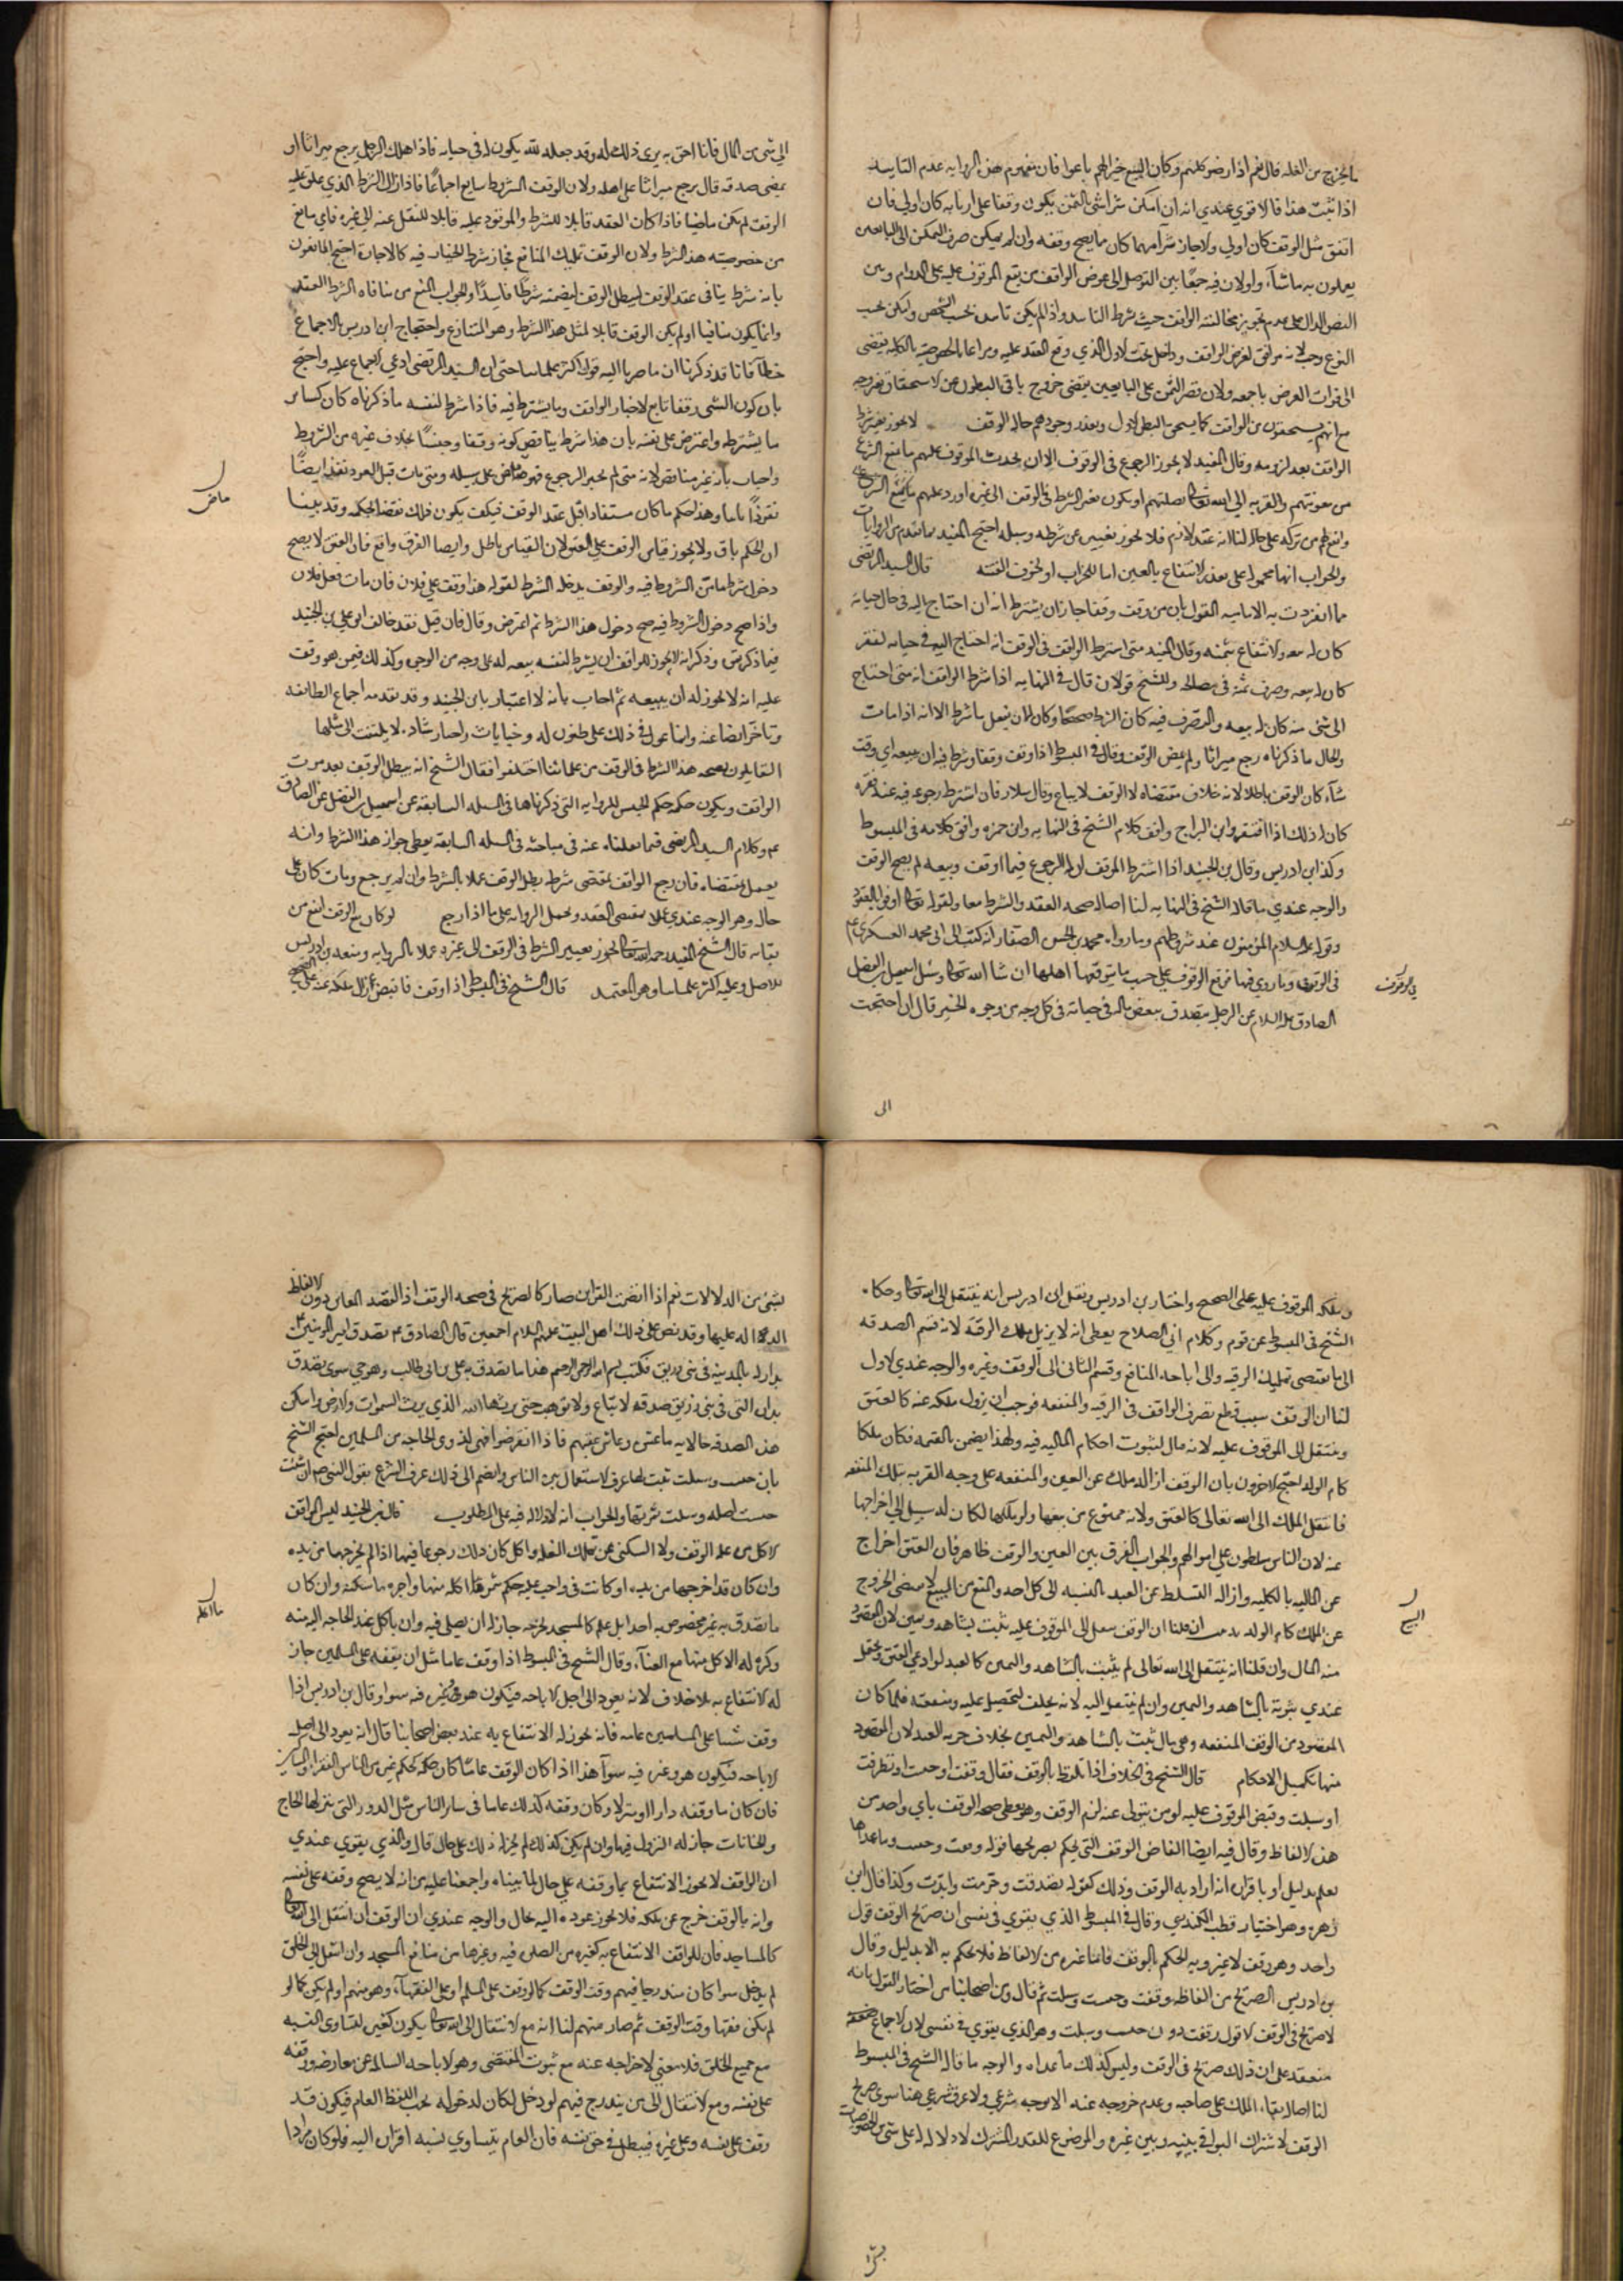 ما يخرج من الغله قال نعم اذا رضوا كلهم وكان البيع خيرا لهم باعوا فان مفهوم هذه الروايه عدم التابيد
اذا ثبت هذا فالاقوي عندي انه ان امكن شرا شي بالثمن يكون وقفا علي اربابه كان اولي فان
اتفق مثل الوقف كان اولي والا جاز شرا مهما كان مما يصح وقفه وان لم يمكن صرف الثمن الى البايعين
يعملون به ماشآء، والاولان فيه جمعًا بين التوصل الى غرض الواقف من نفع الموقوف عليه على الدوام وبين
النص الدال على عدم تجويز مخالفته الواقف حيث شرط التابيد واذا لم يمكن تابيده بحسب الشخص ولكن بحسب
النوع وجب لانه موافق لغرض الواقف وداخل تحت الاول الذي وقع العقد عليه ومراعاة الخصوصيه بالكليه يفضى
الى فوات الغرض باجمعه ولان قصر الثمن على البايعين يقتضى خروج باقى البطون عن الاستحقاق بغير وجه
مع انهم يستحقون من الواقف كما يستحق البطن الاول وتعذر وجودهم حاله الوقف لا يجوز تغيير شرط
الواقف بعد لزومه وقال المفيد لا يجوز الرجوع فى الوقوف الا ان يحدث الموقوف عليهم ما يمنع الشرع
من معونتهم والقربه الي الله تعالى بصلتهم او يكون تغير الشرط فى الوقف الى غيره اورد عليهم
وانفع لهم من تركه على حاله لنا انه عقد لازم فلا يجوز تغييره عن شرطه وسبله احتج المفيد بما تقدم من الروايات
والجواب انها محمولة على تعذر الانتفاع بالعين اما للخراب او لخوف الفتنه قال السيد المرتضى
مما انفردت به الاماميه القول بان من وقف وقفا جاز ان يشترط انه ان احتاج اليه فى حال حياته
كان له بيعه والانتفاع بثمنه وقال المفيد متى اشترط الواقف فى الوقف انه احتاج اليه فى حياته لفقر
كان له بيعه وصرف ثمنه فى مصالحه وللشيخ قولان قال فى النهايه اذا شرط الواقف انه متى احتاج
الى شى منه كان له بيعه والتصرف فيه كان الشرط صحيحًا وكان له ان يفعل ما شرط الا انه اذا مات
والحال ما ذكرناه رجع ميراثا ولم يمض الوقف وقال فى المبسوط اذا وقف وقفا وشرط فيه ان يبيعه اي وقت
شآء كان الوقف باطلا لانه خلاف مقتضاه لان الوقف لا يباع وقال سلار فان اشترط رجوعه فيه عند فقره
كان له ذلك اذا افتقر وابن البراج وافق كلام الشيخ فى النهايه وابن حمزه وافق كلامه فى المبسوط
وكذا ابن ادريس وقال بن الجنيد اذا اشترط الموقف له الرجوع فيما اوقف وبيعه لم يصح الوقف
والوجه عندي ما قاله الشيخ فى النهايه لنا اصاله صحه العقد والشرط معا ولقوله تعالى اوفوا بالعقود
وقوله عليه السلام المؤمنون عند شروطهم وما رواه محمد بن الحسن الصفار انه كتب الى ابى محمد العسكرى ع
فى الوقوف وما روي فيها فوقع الوقوف على حسب ما يوقفها اهلها ان شا الله تعالى وسئل اسمعيل بن الفضل
الصادق عليه السلام عن الرجل يتصدق ببعض ماله فى حياته فى كل وجه من وجوه الخير قال ان احتجت
الى
فى الوقوف
الى شى من المال فانا احق به يرى ذلك له وقد جعله لله يكون له فى حياته فاذا هلك الرجل يرجع ميراثا او
يمضى صدقه قال يرجع ميراثا على اهله ولان الوقف المشروط سايغ اجماعًا فاذا زال الشرط الذي علق عليه
الوقف لم يكن ماضيا فاذا كان العقد قابلا للشرط والموقوف عليه قابلا للنقل عنه الي غيره فاي مانع
من خصوصيته هذا الشرط ولان الوقف تمليك المنافع فجاز شرط الخيار فيه كالاجارة احتج المانعون
بانه شرط ينافى عقد الوقف فيبطل الوقف لتضمنه شرطًا فاسدًا والجواب المنع من منافاه الشرط العقد
وانما يكون منافيا لو لم يكن الوقف قابلا لمثل هذا الشرط وهو المتنازع واحتجاج ابن ادريس بالاجماع
خطآ فانا قد ذكرنا ان ما صرنا اليه قول اكثر علماينا حتى ان السيد المرتضى ادعي الاجماع عليه واحتج
بان كون الشى وقفا تابع لاختيار الواقف وما يشترط فيه فاذا شرط لنفسه ما ذكرناه كان كساير
ما يشترطه واعترض على نفسه بان هذا شرط يناقض كونه وقفا وحبسًا بخلاف غيره من الشروط
واجاب بانه غير مناقض لانه متى لم يختر الرجوع فهو ماض على سبيله ومتى مات قبل العود نفذ ايضًا
نفوذًا تاما وهذا حكم ما كان مستفادا قبل عقد الوقف فكيف يكون ذلك نقضا لحكمه وقد بينا
ان الحكم باق ولا يجوز قياس الوقف علي العتق لان القياس باطل وايضا الفرق واقع فان العتق لا يصح
دخول شرط ما من الشروط فيه والوقف يدخله الشرط لقوله هذا وقف علي فلان فان مات فعلي فلان
واذا صح دخول الشروط فيه صح دخول هذا الشرط ثم اعترض وقال فان قيل فقد خالف ابو علي بن الجنيد
فيما ذكرتم وذكر انه لا يجوز للواقف ان يشرط لنفسه بيعه له على وجه من الوجوه وكذلك فيمن هو وقف
عليه انه لا يجوز له ان يبيعه ثم اجاب بانه لا اعتبار بابن الجنيد وقد تقدمه اجماع الطائفه
وتاخر ايضا عنه وانما عول فى ذلك على ظنون له وحسابات واخبار شاذه لا يلتفت الى مثلها
القايلون بصحه هذا الشرط فى الوقف من علمائنا اختلفوا فقال الشيخ انه يبطل الوقف بعد موت
الواقف ويكون حكمه حكم الحبس للروايه التى ذكرناها فى المسله السابقه عن اسمعيل بن الفضل عن الصادق
ع م وكلام السيد المرتضى فيما نقلناه عنه فى مباحثه فى المسله السابقه يعطى جواز هذا الشرط وانه
يعمل بمقتضاه فان رجع الواقف بمقتضى شرطه بطل الوقف عملا بالشرط وان لم يرجع ومات كان على
حاله وهو الوجه عندي عملا بمقتضى العقد وتحمل الروايه على ما اذا رجع لو كان بيع الوقف انفع من
بقائه قال الشيخ المفيد رحمه الله تعالى يجوز تغيير الشرط فى الوقف الى غيره عملا بالروايه ومنعه بن ادريس
للاصل وعليه اكثر علماينا وهو المعتمد قال الشيخ فى المبسوط اذا وقف فاقبض زال ملكه عنه على الصحيح
ماض
وملكه الموقوف عليه على الصحيح واختاره بن ادريس ونقل ابن ادريس انه ينتقل الى الله تعالى وحكاه
الشيخ فى المبسوط عن قوم وكلام ابي الصلاح يعطى انه لا يزيل ملك الرقبه لانه قسم الصدقه
الى ما يقتضى تمليك الرقبه والى اباحه المنافع وقسم الثانى الى الوقف وغيره والوجه عندي الاول
لنا ان الوقف سبب قطع تصرف الواقف فى الرقبه والمنفعه فوجب ان يزول ملكه عنه كالعتق
وينتقل الى الموقوف عليه لانه مال لثبوت احكام الماليه فيه ولهذا يضمن بالقيمه فكان ملكا
كام الولد احتج الاخرون بان الوقف ازاله ملك عن العين والمنفعه على وجه القربه بتلك المنفعه
فانتقل الملك الى الله تعالى كالعتق ولانه ممنوع من بيعها ولو ملكها لكان له سبيل الى اخراجها
عنه لان الناس مسلطون علي اموالهم والجواب الفرق بين العين والوقف ظاهر فان العتق اخراج
عن الماليه بالكليه وازاله التسلط عن العبد بالنسبه الى كل احد والمنع من البيع لا يقتضى الخروج
عن الملك كام الولد ان قلنا ان الوقف ينتقل الي الموقوف عليه يثبت بشاهد ويمين لان المقصود
منه المال وان قلنا انه ينتقل الى الله تعالى لم يثبت بالشاهد واليمين كالعبد لو ادعي العتق ويحتمل
عندي ثبوته بالشاهد واليمين وان لم ينتقل اليه لانه يحلف لتحصيل غلته ومنفعته فلما كان
المقصود من الوقف المنفعه وهى مال ثبت بالشاهد واليمين بخلاف حريه العبد لان المقصود
منها تكميل الاحكام قال الشيخ فى الخلاف اذا تلفظ بالوقف فقال وقفت او حبست او تصدقت
او سبلت وقبض الموقوف عليه او من يتولى عنه لزم الوقف وهو يعطى صحه الوقف باي واحد من
هذه الالفاظ وقال فيه ايضا الفاظ الوقف التى يحكم بصريحها قوله وقفت وحبست وسبلت وما عداها
يعلم بدليل او باقراره انه اراد به الوقف وذلك كقوله تصدقت وحرمت وابدت وكذا قال ابن
زهره وهو اختيار قطب الدين الكيدري وقال فى المبسوط الذي يقوي فى نفسى ان صريح الوقف قول
واحد وهو وقف لا غير وبه يحكم بالوقف فاما غيره من الالفاظ فلا يحكم به الا بدليل وقال
بن ادريس الصريح من الفاظه وقفت وحبست وسبلت ثم قال ومن اصحابنا من اختار القول بانه
لا صريح فى الوقف الا قول وقفت دون حبست وسبلت وهو الذي يقوي فى نفسى لان الاجماع
منعقد على ان ذلك صريح فى الوقف وليس كذلك ما عداه والوجه ما قاله الشيخ فى المبسوط
لنا اصاله بقاء الملك على صاحبه وعدم خروجه عنه الا بوجه شرعي ولا عرف شرعي هنا سوى صريح
الوقف لاشتراك البواقى بينه وبين غيره والموضوع للقدر المشترك لا دلاله له على شى من الخصوصيات
بشى
بشى من الدلالات نعم اذا انضمت القراين صار كالصريح فى صحه الوقف اذ القصد المعانى دون الالفاظ
الداله عليها وقد نص على ذلك اهل البيت عليهم السلام اجمعين قال الصادق ع م تصدق امير المومنين ع
بدار له بالمدينه فى بنى زريق فكتب بسم الله الرحمن الرحيم هذا ما تصدق به علي بن ابى طالب وهو حي سوى تصدق
بداره التى فى بنى زريق صدقه لا تباع ولا توهب حتى يرثها الله الذي يرث السموات والارض واسكن
هذه الصدقه خالاته ما عشن وعاش عقبهم فاذا انقرضوا فهى لذوى الحاجه من المسلمين احتج الشيخ
بان حبست وسبلت ثبت لها عرف الاستعمال بين الناس وانضم الى ذلك عرف الشرع بقول النبى ص م ان شئت
حبست اصله وسبلت ثمرتها والجواب انه لا دلاله فيه على المطلوب قال بن الجنيد ليس الواقف
لا كل من غله الوقف ولا السكنى ممن تملك الغله ولو اكل كان ذلك رجوعا فيها اذا لم يخرجها من يده
وان كان قد اخرجها من يده او كانت فى واجب عليه حكم شرعا ما اكله منها واجره ما سكنه وان كان
ما تصدق به غير مخصوص به احدا بل علم كالمسجد يخرجه جاز له ان يصلى فيه وان ياكل عند الحاجه اليه منه
وكره له الاكل منها مع الغنآء، وقال الشيخ فى المبسوط اذا وقف عاما مثل ان يقفه على المسلمين جاز
له الانتفاع به بلا خلاف لانه يعود الى اصل الاباحه فيكون هو وغيره فيه سوا وقال بن ادريس اذا
وقف شيئا على المسلمين عامه فانه يجوز له الانتفاع به عند بعض اصحابنا قال لانه يعود الى اصل
الاباحه فيكون هو وغيره فيه سوآء هذا اذا كان الوقف عامًا كان حكمه كحكم غيره من الناس الفقراء والمساكين
فان كان ما وقفه دارا او منزلا وكان وقفه كذلك عاما فى ساير الناس مثل الدور التى ينزلها الحاج
والخانات جاز له النزول فيها وان لم يكن كذلك لم يجز له ذلك على حال قال والذي يقوي عندي
ان الواقف لا يجوز الانتفاع بما وقفه على حال لما بيناه واجمعنا عليه من انه لا يصح وقفه على نفسه
وانه بالوقف خرج عن ملكه فلا يجوز عوده اليه بحال والوجه عندي ان الوقف ان انتقل الى الله تعالى
كالمساجد فان للواقف الانتفاع به كغيره من الصلوه فيه وغيرها من منافع المسجد وان انتقل الي الخلق
لم يدخل سوا كان مندرجا فيهم وقت الوقف كما لو وقف على المسلم او على الفقهآء، وهو منهم او لم يكن كما لو
لم يكن فقيها وقت الوقف ثم صار منهم لنا انه مع الانتقال الى الله تعالى يكون كغيره لتساوي النسبه
مع جميع الخلق فلا معنى لاخراجه عنه مع ثبوت المقتضى وهو الاباحه السالمه عن معارضه وقفه
على نفسه ومع الانتقال الى من يندرج فيهم لو دخل لكان لدخوله تحت اللفظ العام فيكون قد
وقف على نفسه وعلى غيره فيبطل فى حق نفسه فان العام يتساوي نسبه افراده اليه فلو كان مرادا